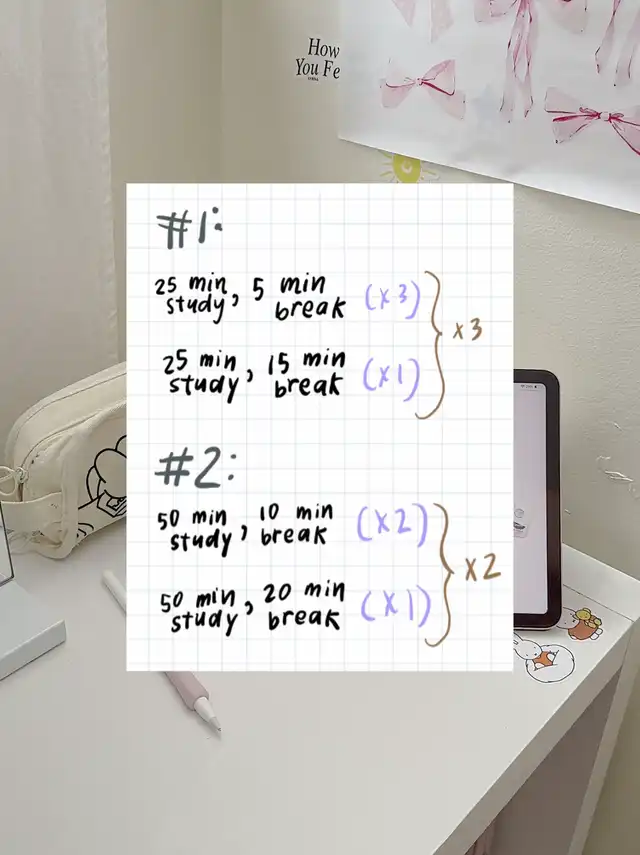 How
You Fe
#1:
25 min study, 5 min break (x3)
25 min study, 15 min break (x1)
x3
#2:
50 min study, 10 min break (x2)
50 min study, 20 min break (x1)
x2